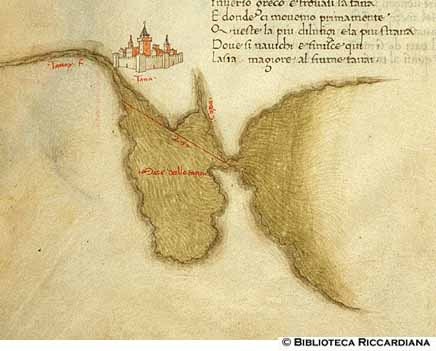 Inverso greco e trovali la tana
E donde ci movemo primamente
Questa e la piu diricta e la piu strana
Dove si navichi e finisce qui
Lasia magiore al fiume tanai
Tanay F.
Tana
Mare della tana
© BIBLIOTECA RICCARDIANA